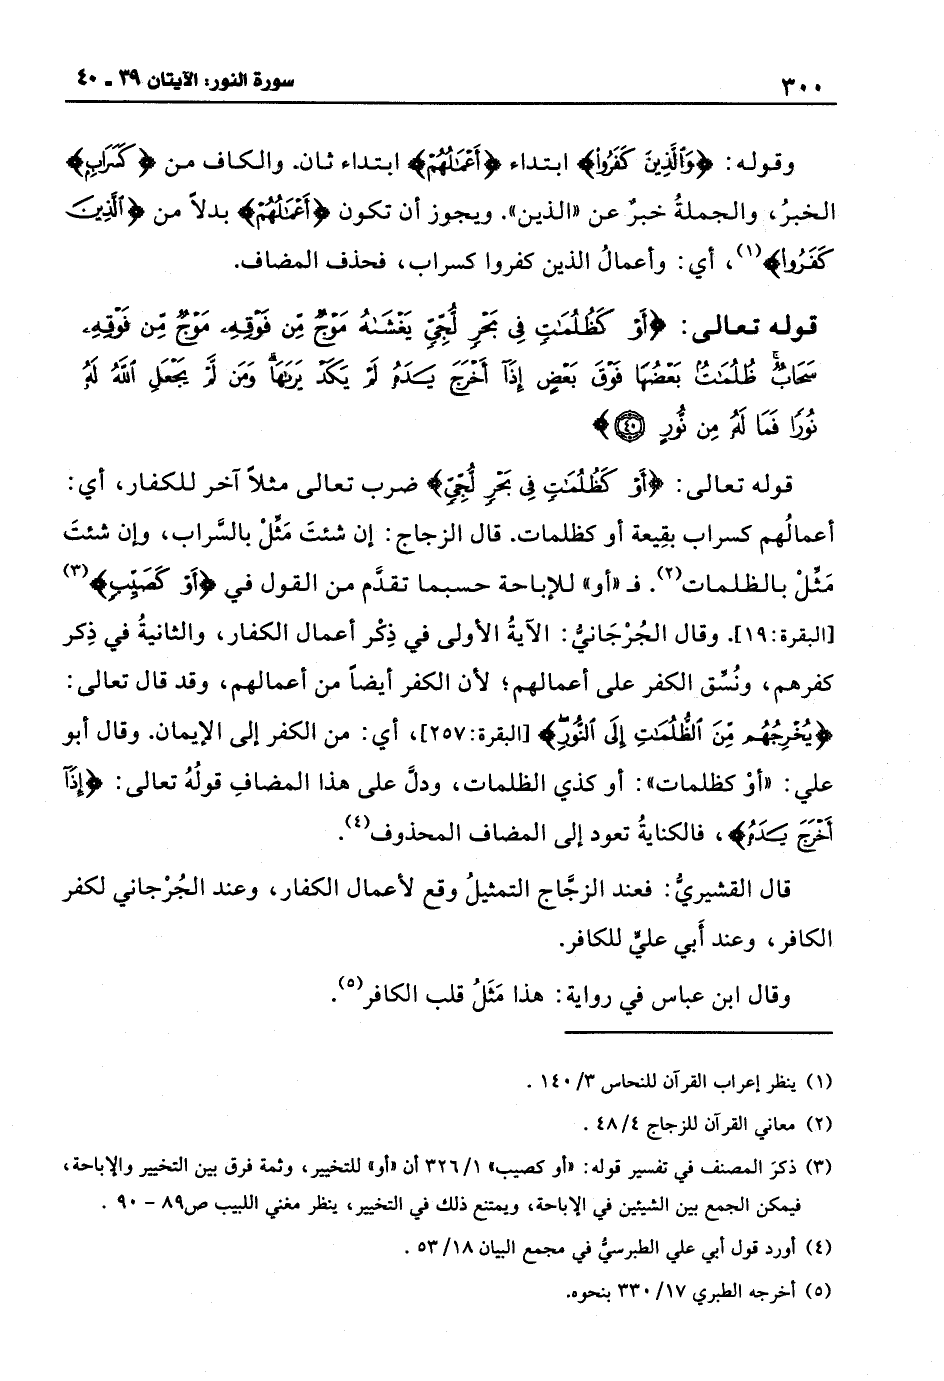 ٣٠٠
سورة النور: الآيتان ٣٩ - ٤٠
وقوله: ﴿وَٱلَّذِينَ كَفَرُوٓا۟﴾ ابتداء ﴿أَعْمَٰلُهُمْ﴾ ابتداء ثان. والكاف من ﴿كَسَرَابٍ﴾
الخبرُ، والجملةُ خبرٌ عن «الذين». ويجوز أن تكون ﴿أَعْمَٰلُهُمْ﴾ بدلاً من ﴿ٱلَّذِينَ
كَفَرُوٓا۟﴾(١)، أي: وأعمالُ الذين كفروا كسراب، فحذف المضاف.
قوله تعالى: ﴿أَوْ كَظُلُمَٰتٍ فِى بَحْرٍ لُّجِّىٍّ يَغْشَىٰهُ مَوْجٌ مِّن فَوْقِهِۦ مَوْجٌ مِّن فَوْقِهِۦ
سَحَابٌ ۚ ظُلُمَٰتٌۢ بَعْضُهَا فَوْقَ بَعْضٍ إِذَآ أَخْرَجَ يَدَهُۥ لَمْ يَكَدْ يَرَىٰهَا ۗ وَمَن لَّمْ يَجْعَلِ ٱللَّهُ لَهُۥ
نُورًا فَمَا لَهُۥ مِن نُّورٍ ٤٠﴾
قوله تعالى: ﴿أَوْ كَظُلُمَٰتٍ فِى بَحْرٍ لُّجِّىٍّ﴾ ضرب تعالى مثلاً آخر للكفار، أي:
أعمالُهم كسراب بقِيعة أو كظلمات. قال الزجاج: إن شئتَ مَثِّلْ بالسَّراب، وإن شئتَ
مَثِّلْ بالظلمات(٢). فـ «أو» للإباحة حسبما تقدَّم من القول في ﴿أَوْ كَصَيِّبٍ﴾(٣)
[البقرة:١٩]. وقال الجُرْجَانيُّ: الآيةُ الأولى في ذِكْر أعمال الكفار، والثانيةُ في ذِكر
كفرهم، ونُسِّق الكفر على أعمالهم؛ لأن الكفر أيضاً من أعمالهم، وقد قال تعالى:
﴿يُخْرِجُهُم مِّنَ ٱلظُّلُمَٰتِ إِلَى ٱلنُّورِ ۖ﴾ [البقرة:٢٥٧]، أي: من الكفر إلى الإيمان. وقال أبو
علي: «أوْ كظلمات»: أو كذي الظلمات، ودلَّ على هذا المضافِ قولُهُ تعالى: ﴿إِذَآ
أَخْرَجَ يَدَهُۥ﴾، فالكنايةُ تعود إلى المضاف المحذوف(٤).
قال القشيريُّ: فعند الزجَّاج التمثيلُ وقع لأعمال الكفار، وعند الجُرْجاني لكفر
الكافر، وعند أَبي عليٍّ للكافر.
وقال ابن عباس في رواية: هذا مَثَلُ قلب الكافر(٥).
(١) ينظر إعراب القرآن للنحاس ٣/ ١٤٠ .
(٢) معاني القرآن للزجاج ٤/ ٤٨ .
(٣) ذكرَ المصنف في تفسير قوله: «أو كصيب» ١/ ٣٢٦ أن «أو» للتخيير، وثمة فرق بين التخيير والإباحة،
فيمكن الجمع بين الشيئين في الإباحة، ويمتنع ذلك في التخيير، ينظر مغني اللبيب ص٨٩ - ٩٠ .
(٤) أورد قول أبي علي الطبرسيُّ في مجمع البيان ١٨/ ٥٣ .
(٥) أخرجه الطبري ١٧/ ٣٣٠ بنحوه.